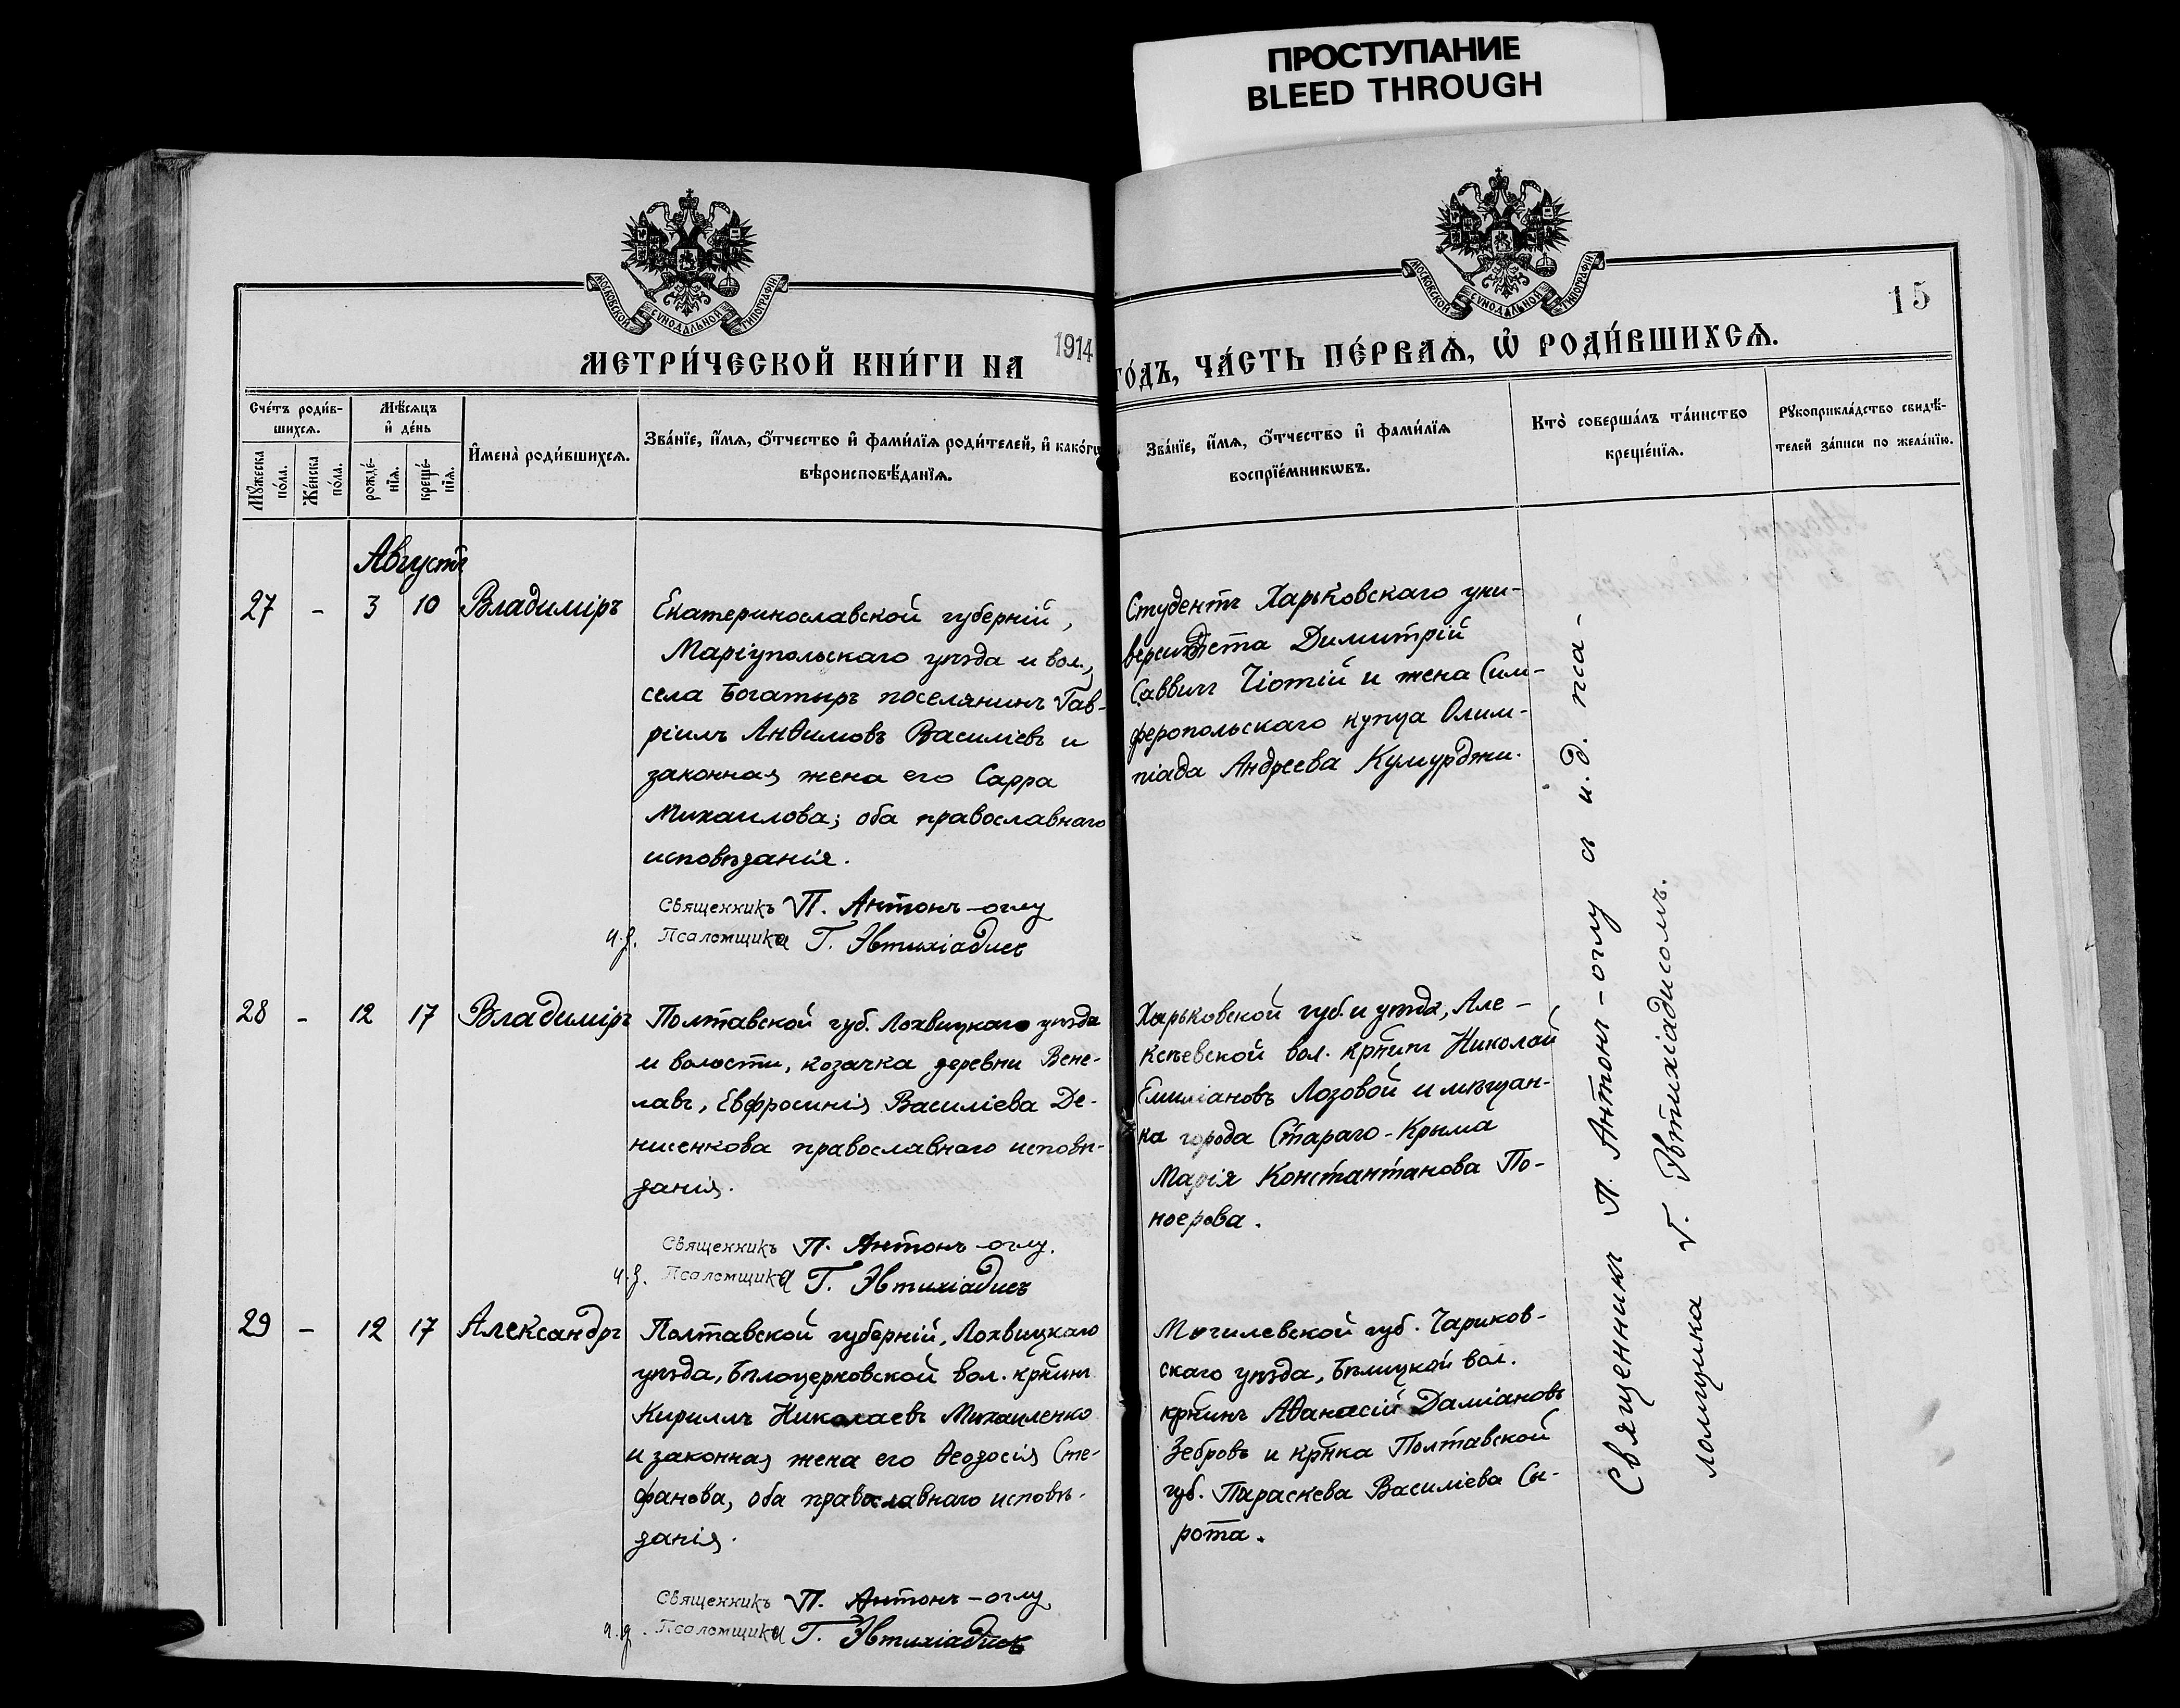 ПРОСТУПАНИЕ
BLEED THROUGH
МОСКОВСКОЙ СѴНОДАЛЬНОЙ ТИПОГРАФІИ
МОСКОВСКОЙ СѴНОДАЛЬНОЙ ТИПОГРАФІИ
15
МЕТРИ́ЧЕСКОЙ КНИ́ГИ НА 1914 ГО́ДЪ, ЧА́СТЬ ПЕ́РВАѦ, Ѡ҆ РОДИ́ВШИХСѦ.
Сче́тъ роди́в-
шихсѧ.
Мꙋ́жеска
по́ла.
Же́нска
по́ла.
Мѣ́сѧцъ
и҆ де́нь
рожде́-
нїѧ.
креще́-
нїѧ.
И҆мена̀ роди́вшихсѧ.
Зва́нїе, и҆́мѧ, ѻ҆́тчество и҆ фами́лїѧ роди́телей, и҆ како́гѡ
вѣроисповѣ́данїѧ.
Зва́нїе, и҆́мѧ, ѻ҆́тчество и҆ фами́лїѧ
воспрїе́мникѡвъ.
Кто̀ соверша́лъ та́инство
креще́нїѧ.
Рꙋкоприкла́дство свидѣ́-
телей за́писи по жела́нїю.
Августъ
27 - 3 10 Владиміръ
Екатеринославской губерніи,
Маріупольскаго уѣзда и вол.,
села Богатырь поселянинъ Гав-
ріилъ Анѳимовъ Василіевъ и
законная жена его Сарра
Михаилова; оба православнаго
исповѣданія.
Священникъ П. Антонъ-оглу
и.д. Псаломщика Г. Эвтихіадисъ
Студентъ Харьковскаго уни-
верситета Димитрій
Саввичъ Чіотій и жена Сим-
феропольскаго купца Олим-
піада Андреева Кумурджи.
28 - 12 17 Владиміръ
Полтавской губ. Лохвицкаго уѣзда
и волости, козачка деревни Вене-
лавъ, Евфросинія Василіева Де-
нисенкова православнаго исповѣ-
данія.
Священникъ П. Антонъ-оглу.
и.д. Псаломщика Г. Эвтихіадисъ
Харьковской губ. и уѣзда, Але-
ксѣевской вол. кр̃нинъ Николай
Емиліановъ Лозовой и мѣщан-
ка города Стараго-Крыма
Марія Константанова По-
ноерова.
29 - 12 17 Александръ
Полтавской губерніи, Лохвицкаго
уѣзда, Бѣлоцерковской вол. кр̃нинъ
Кириллъ Николаевъ Михаиленко
и законная жена его Ѳеодосія Сте-
фанова, оба православнаго исповѣ-
данія.
Священникъ П. Антонъ-оглу
и.д. Псаломщика Г. Эвтихіадисъ
Могилевской губ. Чариков-
скаго уѣзда, Бѣлицкой вол.
кр̃нинъ Аѳанасій Даміановъ
Зебровъ и кр̃нка Полтавской
губ. Параскева Василіева Сы-
рота.
Священникъ П. Антонъ-оглу съ и.д. пса-
ломщика Г. Эвтихіадисомъ.